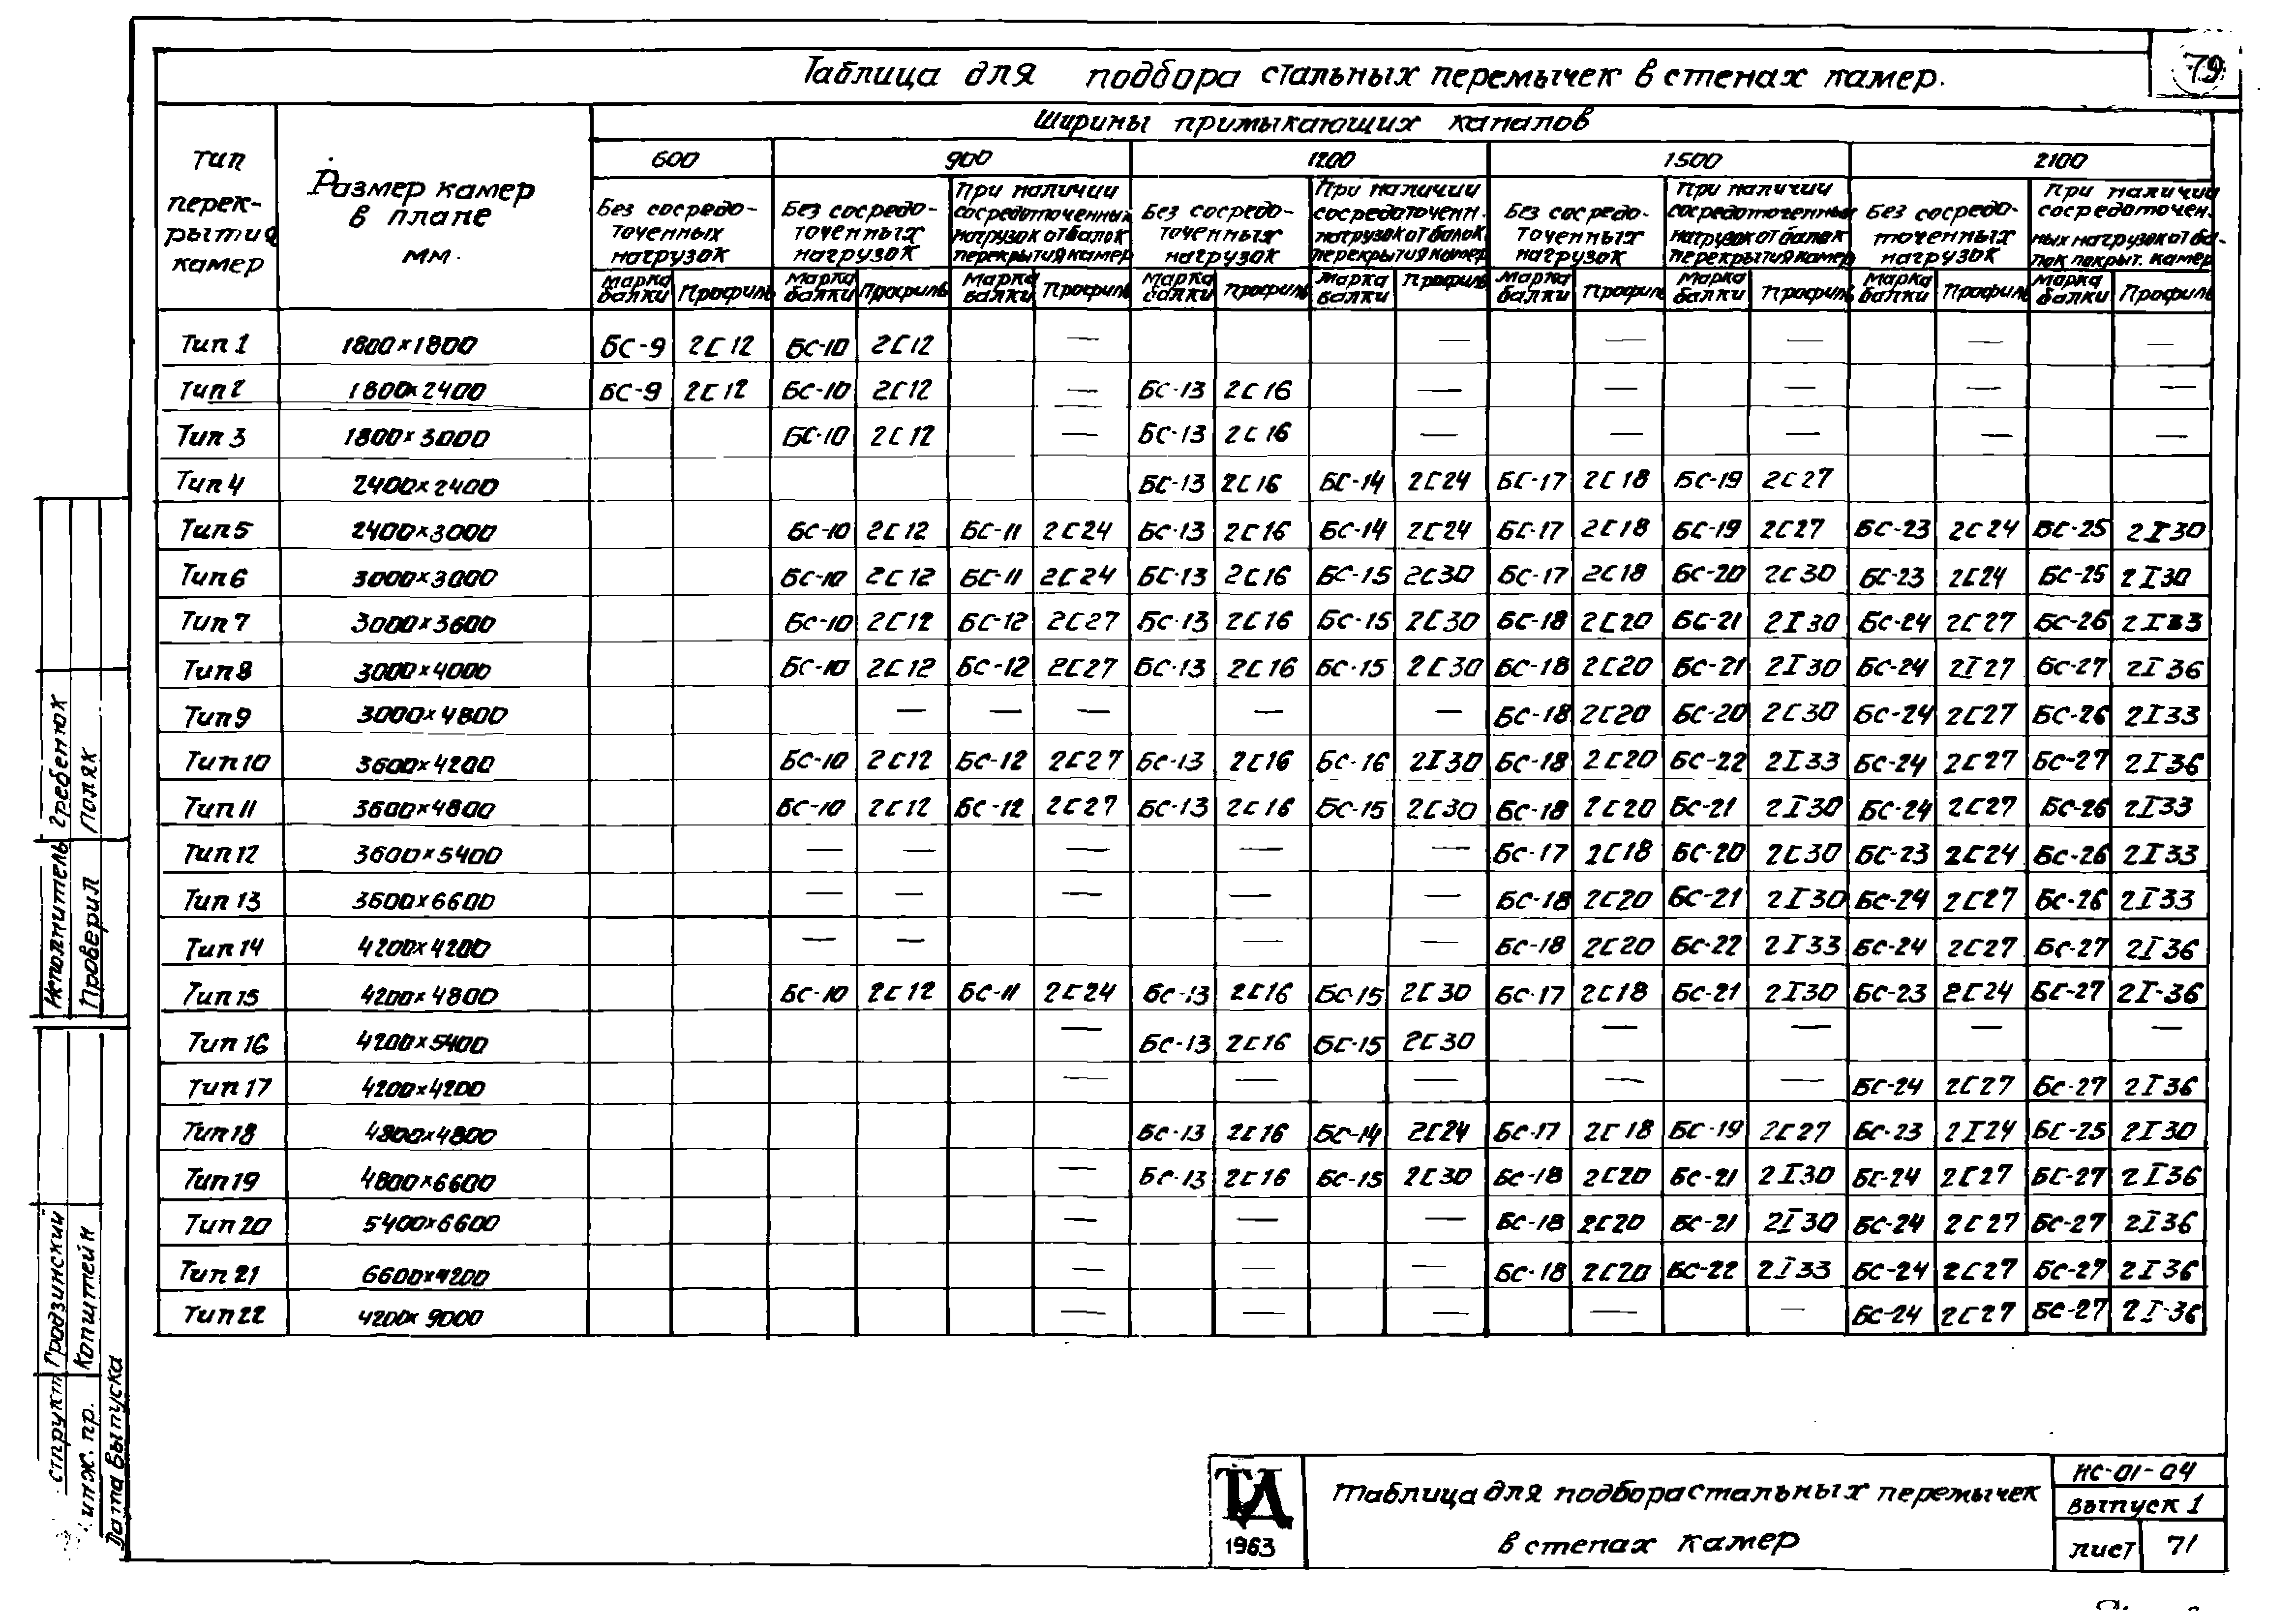 79
Таблица для подбора стальных перемычек в стенах камер.
Тип перек-рытия камер
Размер камер в плане мм.
Ширины примыкающих каналов
600 900 1200 1500 2100
Без сосредо-точенных нагрузок
Без сосредо-точенных нагрузок
При наличии сосредоточенных нагрузок от балок перекрытия камер
Без сосредо-точенных нагрузок
При наличии сосредоточенн. нагрузок от балок перекрытия камер
Без сосредо-точенных нагрузок
При наличии сосредоточенных нагрузок от балок перекрытия камер
Без сосредо-точенных нагрузок
При наличии сосредоточен.ных нагрузок от ба-лок покрыт. камер
Марка балки Профиль Марка балки Профиль Марка балки Профиль Марка балки Профиль Марка балки Профиль Марка балки Профиль Марка балки Профиль Марка балки Профиль Марка балки Профиль
Тип 1 1800×1800 БС-9 2С12 БС-10 2С12 — — — — — —
Тип 2 1800×2400 БС-9 2С12 БС-10 2С12 — БС-13 2С16 — — — — —
Тип 3 1800×3000 БС-10 2С12 — БС-13 2С16 — — — — —
Тип 4 2400×2400 БС-13 2С16 БС-14 2С24 БС-17 2С18 БС-19 2С27
Тип 5 2400×3000 БС-10 2С12 БС-11 2С24 БС-13 2С16 БС-14 2С24 БС-17 2С18 БС-19 2С27 БС-23 2С24 БС-25 2I30
Тип 6 3000×3000 БС-10 2С12 БС-11 2С24 БС-13 2С16 БС-15 2С30 БС-17 2С18 БС-20 2С30 БС-23 2С24 БС-25 2I30
Тип 7 3000×3600 БС-10 2С12 БС-12 2С27 БС-13 2С16 БС-15 2С30 БС-18 2С20 БС-21 2I30 БС-24 2С27 БС-26 2I33
Тип 8 3000×4000 БС-10 2С12 БС-12 2С27 БС-13 2С16 БС-15 2С30 БС-18 2С20 БС-21 2I30 БС-24 2I27 БС-27 2I36
Тип 9 3000×4800 — — — — — БС-18 2С20 БС-20 2С30 БС-24 2С27 БС-26 2I33
Тип 10 3600×4200 БС-10 2С12 БС-12 2С27 БС-13 2С16 БС-16 2I30 БС-18 2С20 БС-22 2I33 БС-24 2С27 БС-27 2I36
Тип 11 3600×4800 БС-10 2С12 БС-12 2С27 БС-13 2С16 БС-15 2С30 БС-18 2С20 БС-21 2I30 БС-24 2С27 БС-26 2I33
Тип 12 3600×5400 — — — — — БС-17 2С18 БС-20 2С30 БС-23 2С24 БС-26 2I33
Тип 13 3600×6600 — — — — — БС-18 2С20 БС-21 2I30 БС-24 2С27 БС-26 2I33
Тип 14 4200×4200 — — — — БС-18 2С20 БС-22 2I33 БС-24 2С27 БС-27 2I36
Тип 15 4200×4800 БС-10 2С12 БС-11 2С24 БС-13 2С16 БС-15 2С30 БС-17 2С18 БС-21 2I30 БС-23 2С24 БС-27 2I-36
Тип 16 4200×5400 — БС-13 2С16 БС-15 2С30 — — — —
Тип 17 4200×4200 — — — — — БС-24 2С27 БС-27 2I36
Тип 18 4800×4800 БС-13 2С16 БС-14 2С24 БС-17 2С18 БС-19 2С27 БС-23 2I24 БС-25 2I30
Тип 19 4800×6600 — БС-13 2С16 БС-15 2С30 БС-18 2С20 БС-21 2I30 БС-24 2С27 БС-27 2I36
Тип 20 5400×6600 — — — БС-18 2С20 БС-21 2I30 БС-24 2С27 БС-27 2I36
Тип 21 6600×4200 — — — БС-18 2С20 БС-22 2I33 БС-24 2С27 БС-27 2I36
Тип 22 4200×9000 — — — — — БС-24 2С27 БС-27 2I-36
Исполнитель Гребенюк
Проверил Поляк
структ Гродзинский
инж. пр. Копштейн
Дата выпуска
ТД
1963
Таблица для подбора стальных перемычек
в стенах камер
НС-01-04
выпуск 1
лист 71